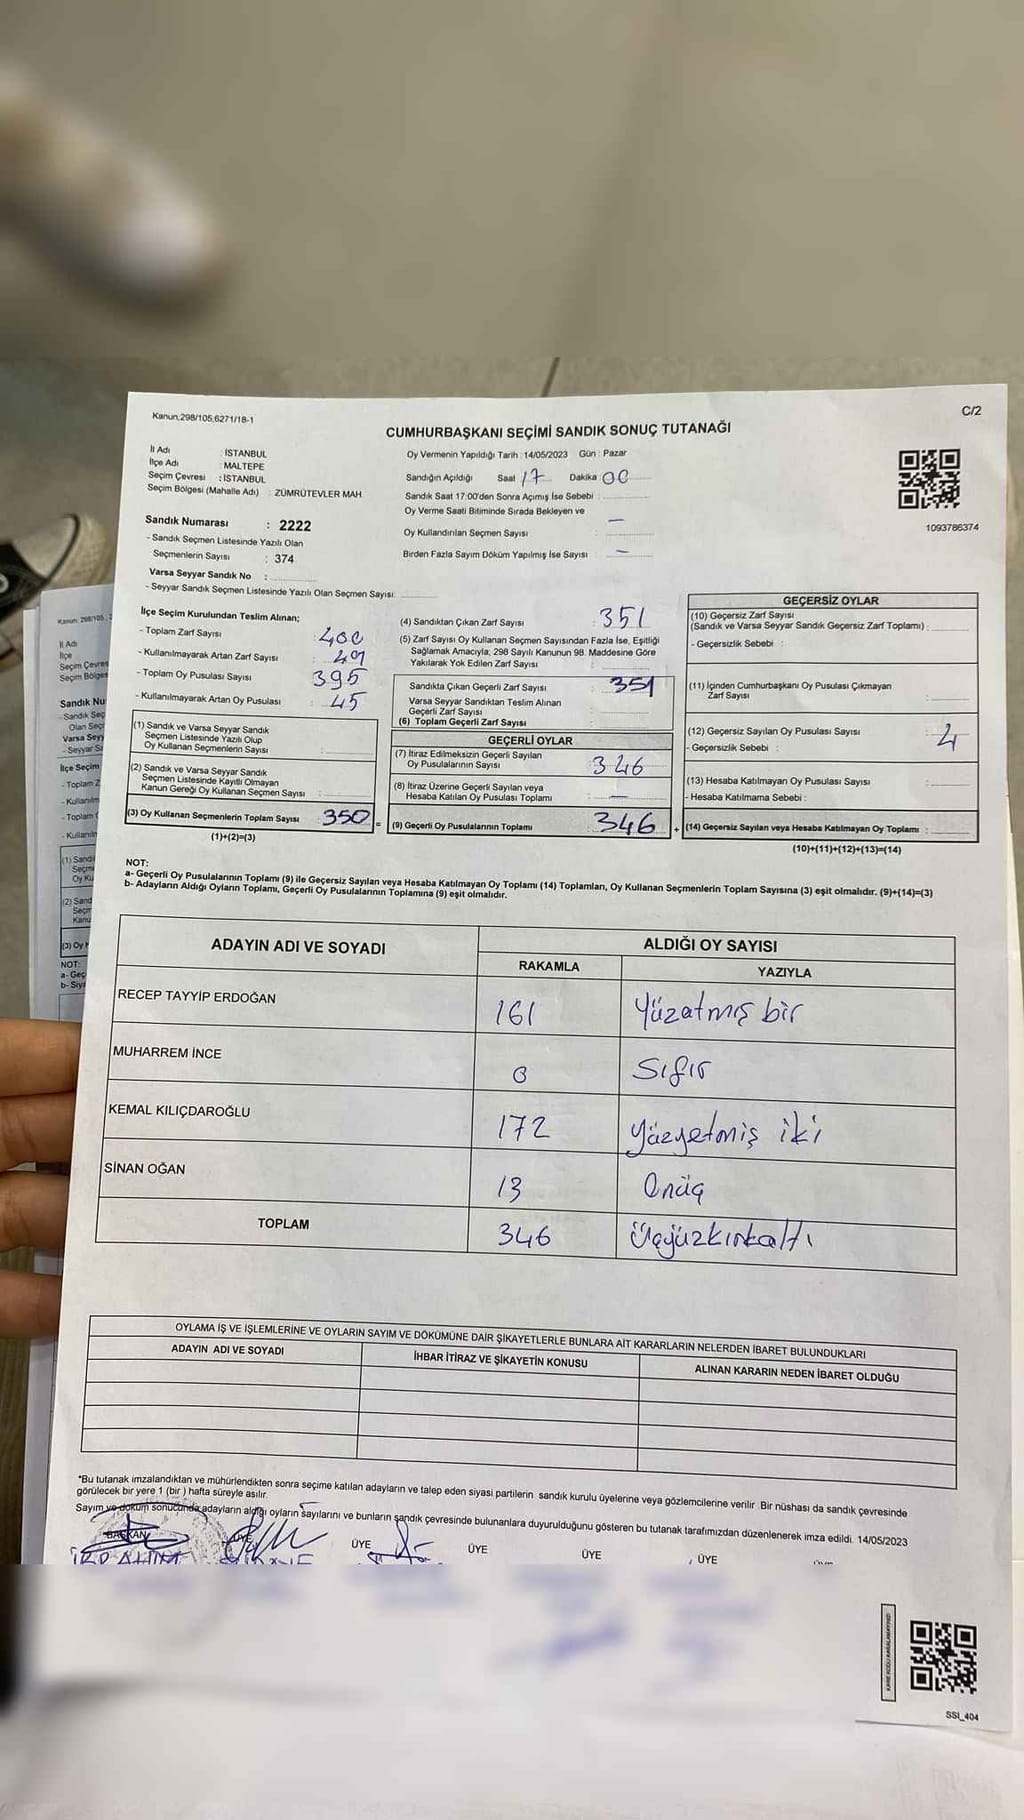 Kanun,298/105,6271/18-1
C/2
CUMHURBAŞKANI SEÇİMİ SANDIK SONUÇ TUTANAĞI
İl Adı : İSTANBUL
İlçe Adı : MALTEPE
Seçim Çevresi : İSTANBUL
Seçim Bölgesi (Mahalle Adı) : ZÜMRÜTEVLER MAH.
Sandık Numarası : 2222
- Sandık Seçmen Listesinde Yazılı Olan
Seçmenlerin Sayısı : 374
Varsa Seyyar Sandık No :
- Seyyar Sandık Seçmen Listesinde Yazılı Olan Seçmen Sayısı:
Oy Vermenin Yapıldığı Tarih : 14/05/2023 Gün : Pazar
Sandığın Açıldığı Saat 17 Dakika 00
Sandık Saat 17:00'den Sonra Açımış İse Sebebi :
Oy Verme Saati Bitiminde Sırada Bekleyen ve
Oy Kullandırılan Seçmen Sayısı : —
Birden Fazla Sayım Döküm Yapılmış İse Sayısı : —
1093786374
İlçe Seçim Kurulundan Teslim Alınan;
- Toplam Zarf Sayısı : 400
- Kullanılmayarak Artan Zarf Sayısı : 49
- Toplam Oy Pusulası Sayısı : 395
- Kullanılmayarak Artan Oy Pusulası : 45
(1) Sandık ve Varsa Seyyar Sandık
Seçmen Listesinde Yazılı Olup
Oy Kullanan Seçmenlerin Sayısı :
(2) Sandık ve Varsa Seyyar Sandık
Seçmen Listesinde Kayıtlı Olmayan
Kanun Gereği Oy Kullanan Seçmen Sayısı :
(3) Oy Kullanan Seçmenlerin Toplam Sayısı : 350
(1)+(2)=(3)
(4) Sandıktan Çıkan Zarf Sayısı : 351
(5) Zarf Sayısı Oy Kullanan Seçmen Sayısından Fazla İse, Eşitliği
Sağlamak Amacıyla, 298 Sayılı Kanunun 98. Maddesine Göre
Yakılarak Yok Edilen Zarf Sayısı :
Sandıkta Çıkan Geçerli Zarf Sayısı : 351
Varsa Seyyar Sandıktan Teslim Alınan
Geçerli Zarf Sayısı :
(6) Toplam Geçerli Zarf Sayısı :
GEÇERLİ OYLAR
(7) İtiraz Edilmeksizin Geçerli Sayılan
Oy Pusulalarının Sayısı : 346
(8) İtiraz Üzerine Geçerli Sayılan veya
Hesaba Katılan Oy Pusulası Toplamı : —
(9) Geçerli Oy Pusulalarının Toplamı : 346
=
+
GEÇERSİZ OYLAR
(10) Geçersiz Zarf Sayısı
(Sandık ve Varsa Seyyar Sandık Geçersiz Zarf Toplamı) :
- Geçersizlik Sebebi :
(11) İçinden Cumhurbaşkanı Oy Pusulası Çıkmayan
Zarf Sayısı :
(12) Geçersiz Sayılan Oy Pusulası Sayısı : 4
- Geçersizlik Sebebi :
(13) Hesaba Katılmayan Oy Pusulası Sayısı :
- Hesaba Katılmama Sebebi :
(14) Geçersiz Sayılan veya Hesaba Katılmayan Oy Toplamı :
(10)+(11)+(12)+(13)=(14)
NOT:
a- Geçerli Oy Pusulalarının Toplamı (9) ile Geçersiz Sayılan veya Hesaba Katılmayan Oy Toplamı (14) Toplamları, Oy Kullanan Seçmenlerin Toplam Sayısına (3) eşit olmalıdır. (9)+(14)=(3)
b- Adayların Aldığı Oyların Toplamı, Geçerli Oy Pusulalarının Toplamına (9) eşit olmalıdır.
ADAYIN ADI VE SOYADI
ALDIĞI OY SAYISI
RAKAMLA YAZIYLA
RECEP TAYYİP ERDOĞAN 161 Yüzatmış bir
MUHARREM İNCE 0 Sıfır
KEMAL KILIÇDAROĞLU 172 Yüzyetmiş iki
SİNAN OĞAN 13 Onüç
TOPLAM 346 Üçyüzkırkaltı
OYLAMA İŞ VE İŞLEMLERİNE VE OYLARIN SAYIM VE DÖKÜMÜNE DAİR ŞİKAYETLERLE BUNLARA AİT KARARLARIN NELERDEN İBARET BULUNDUKLARI
ADAYIN ADI VE SOYADI İHBAR İTİRAZ VE ŞİKAYETİN KONUSU ALINAN KARARIN NEDEN İBARET OLDUĞU
*Bu tutanak imzalandıktan ve mühürlendikten sonra seçime katılan adayların ve talep eden siyasi partilerin sandık kurulu üyelerine veya gözlemcilerine verilir. Bir nüshası da sandık çevresinde
görülecek bir yere 1 (bir ) hafta süreyle asılır.
Sayım ve döküm sonucunda adayların aldığı oyların sayılarını ve bunların sandık çevresinde bulunanlara duyurulduğunu gösteren bu tutanak tarafımızdan düzenlenerek imza edildi. 14/05/2023
BAŞKAN ÜYE ÜYE ÜYE ÜYE ÜYE
SSI_404